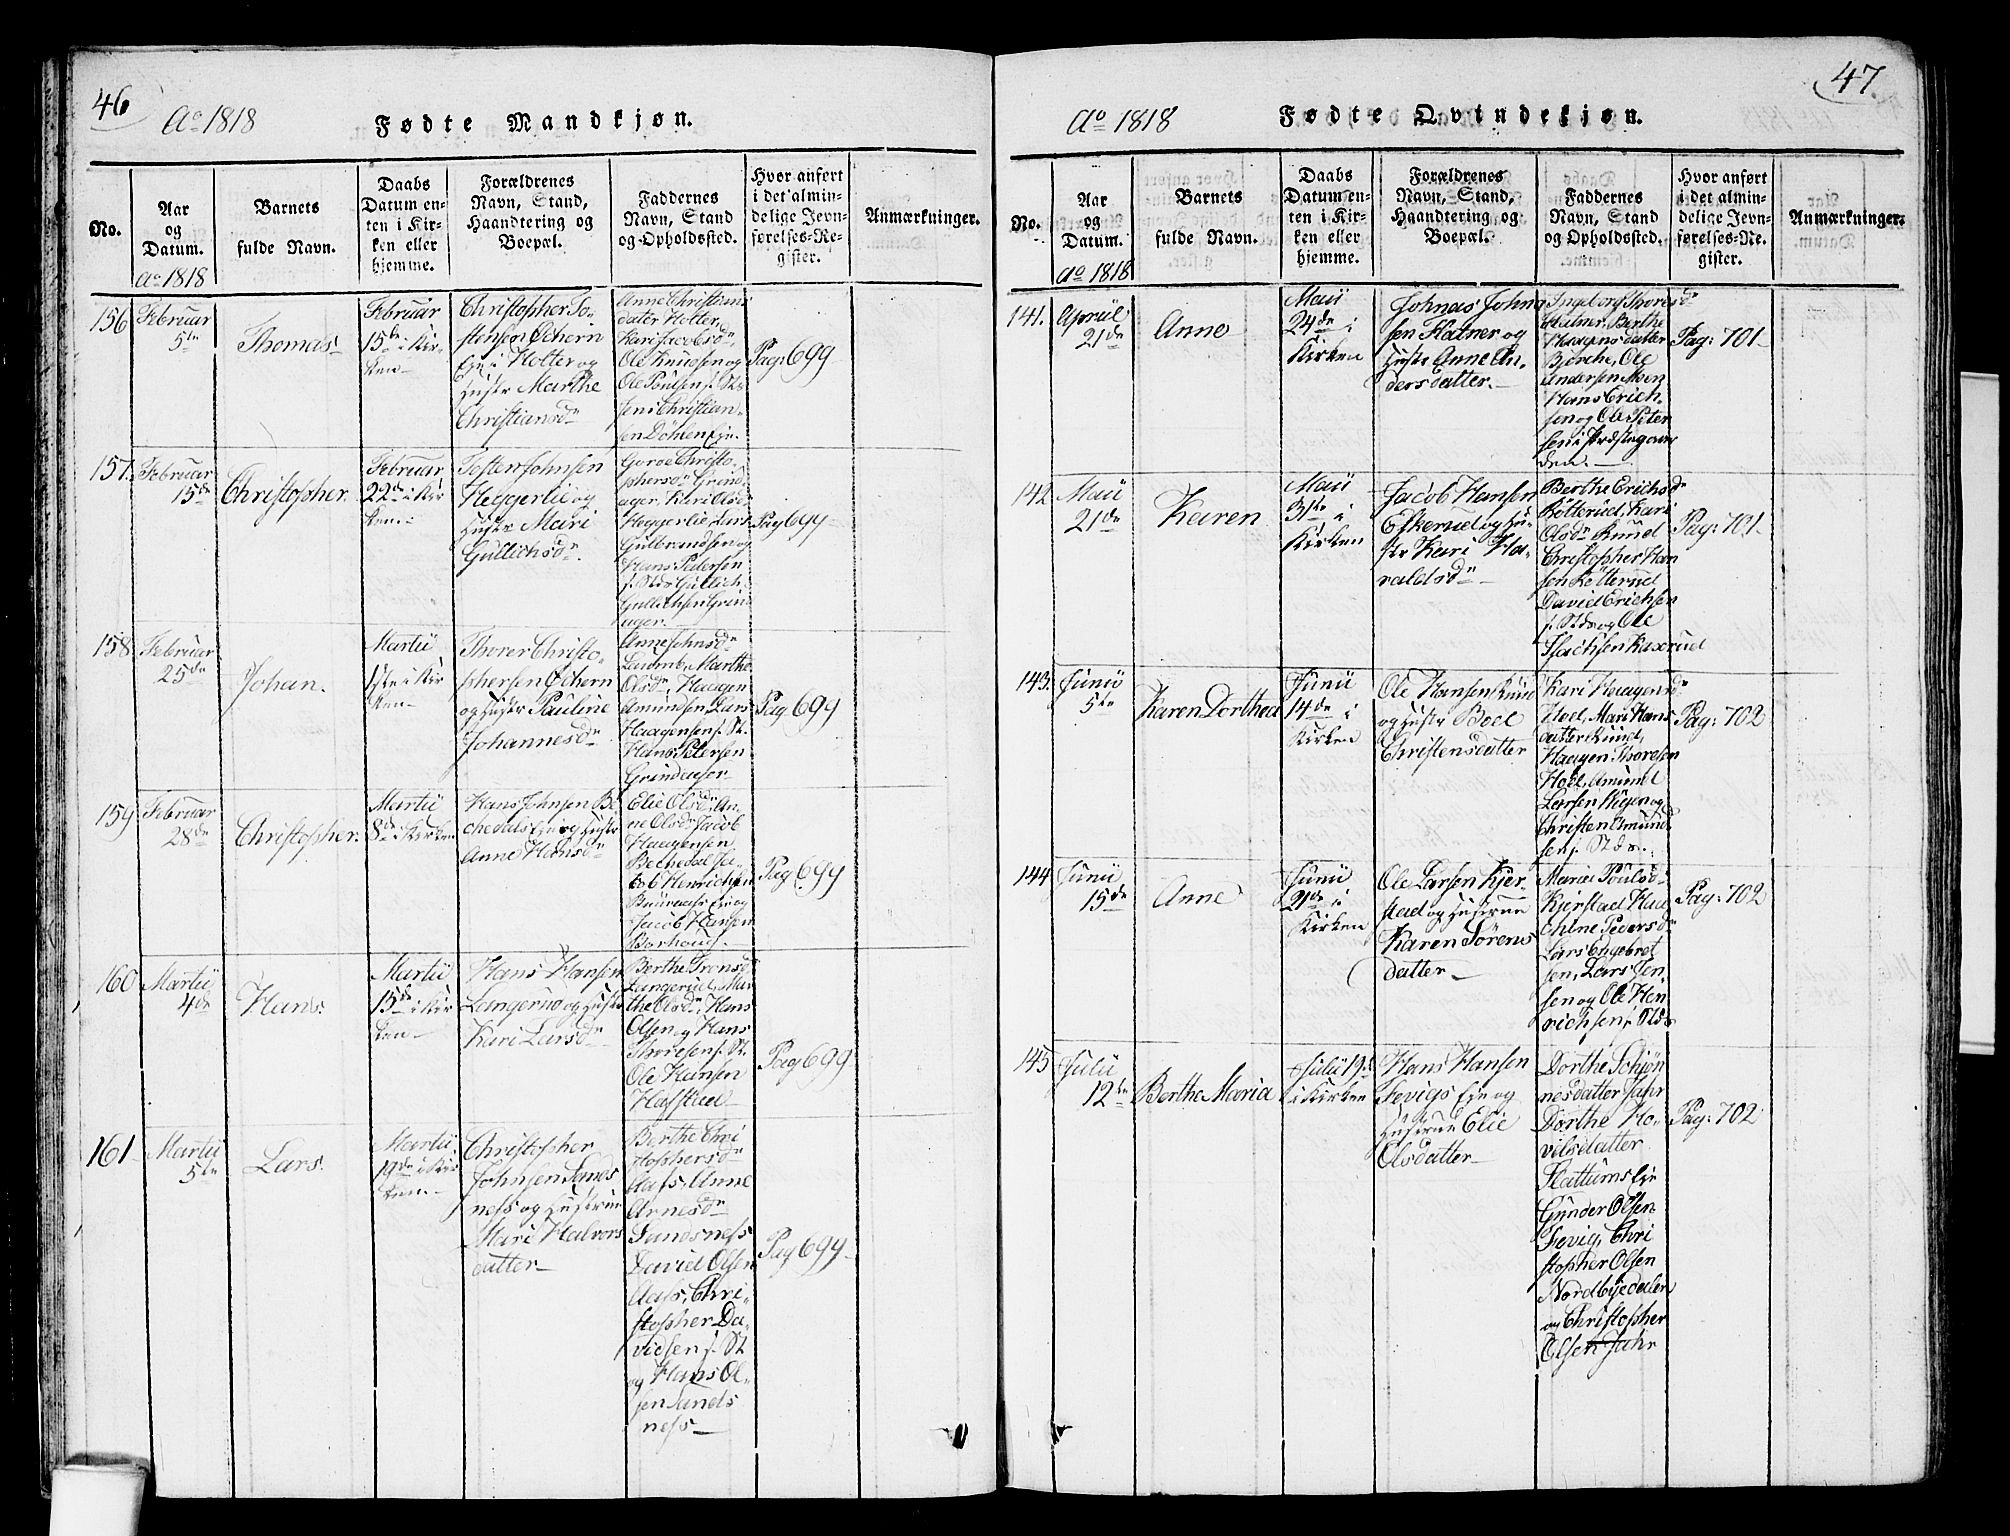 46
Ao 1818
Fødte Mandkjøn.
No.
Aar
og
Datum.
Ao 1818
Barnets
fulde Navn.
Daabs
Datum en-
ten i Kir-
ken eller
hjemme.
Forældrenes
Navn, Stand,
Haandtering og
Boepæl.
Faddernes
Navn, Stand
og Opholdssted.
Hvor anført
i det almin-
delige Jevn-
førelses-Re-
gister.
Anmærkninger.
156
Februar
5te
Thomas
Februar
15de i Kir-
ken
Christopher To-
stensen Ochern
Eje i Hotter og
Hustr Marthe
Christiansdr
Anne Christians
dater Hotter,
Kari Jacobsdr
Ole Knudsen og
Ole Poulsen f. St.
Jens Christian-
sen Döhlen Eje.
Pag: 699
157.
Februar
15de
Christopher.
Februar
22de i Kir
ken
Tosten Johnsen
Heggerlie og
Hustr Mari
Gullichsdr
Goroe Christo-
phersdr Grind-
ager, Kari Olsdr
Heggerlie Lars
Gulbrandsen og
Hans Pedersen
f. Stds Gullich
Gullichsen Grind
ager.
Pag 699
158
Februar
25de
Johan.
Martii
1ste i Kir
ken
Thorer Christo-
phersen Ochern
og Hustr Pauline
Johannesdr
Anne Johnsdr
Lamb, Marthe
Olsdr, Haagen
Amundsen, Lars
Haagensen f. St.
Hans Petersen
Grindager
Pag 699
159
Februar
28de
Christopher.
Martii
8de i Kirken
Hans Johnsen Be
chedals Eje og Hustr
Anne Hansdr
Elie Olsdr, An-
ne Olsdr Jacob
Haagensen
Bechedal Ja-
cob Henrichsen
Eje og
Jacob Hansen
Borhoug.
Pag 699
160
Martii
4de
Hans.
Martii
15de i Kir
ken
Hans Hansen
Langerud og Hustr
Kari Larsdr
Berthe Tronsdr
Langerud, Mar
the Olsdr, Hans
Olsen og Hans
Thoresen f. St.
Ole Hansen
Hafstad
Pag 699
161
Martii
5te
Lars.
Martii
19de i Kir
ken.
Christopher
Johnsen Sands
ness og Hustrue
Mari Halvors
datter
Berthe Chri
stophersdr
Aass, Anne
Arnesdr
Sandsness
David Olsen
Aass, Chri-
stopher Da-
vidsen f. St
og Hans Ol-
sen Sands
ness
Pag 699
47.
Ao 1818
Fødte Qvindekjøn.
No.
Aar
og
Datum.
Ao 1818
Barnets
fulde Navn.
Daabs
Datum en-
ten i Kir-
ken eller
hjemme.
Forældrenes
Navn, Stand,
Haandtering og
Boepæl.
Faddernes
Navn, Stand
og Opholdssted.
Hvor anført
i det almin-
delige Jevn-
førelses-Re-
gister.
Anmærkninger.
141.
April
21de
Anne
Maii
24de i
Kirken
Johnas Johna
sen Flatner og
Hustr Anne An-
dersdatter.
Ingeborg Thoresdr
Flatner, Berthe
Haagensdatter
Bjerche, Ole
Andersen Moen
Hans Erich-
sen og Ole Peter
sen i Præstegaar
den.
Pag: 701
142
Maii
21de
Karen
Maii
31te i
Kirken
Jacob Hansen
Eskerud og Hu-
str Kari Ha-
raldsdr
Berthe Erichsdr
Bötterud, Kari
Olsdr Ruud
Christopher Han
sen Rötterud
David Erichsen
f. Stds og Ole
Isachsen Kaxerud
Pag: 701
143.
Junii
5te
Karen Dorthea
Junii
14de i
Kirken
Ole Hansen Ruud
og Hustr Boel
Christensdatter
Kari Haagensdr
Hoel, Mari Hans
datter Ruud,
Haagen Thoresen
Hoel, Amund
Larsen Hagen og
Christen Amund
sen f. Stds.
Pag: 702
144
Junii
15de
Anne
Junii
21de i
Kirken
Ole Larsen Kjer-
stad og Hustrue
Karen Sörens
datter
Maria Poulsdr
Kjerstad Ka
thrine Pedersdr
Lars Engebret
sen, Lars Jen
sen og Ole Hen
richsen f. Stds
Pag: 702
145
Julii
12te
Berthe Maria
Julii 19de
i Kirken
Hans Hansen
Fevigs Eje og
Hustrue Elie
Olsdatter
Dorthe Schjön
nesdatter Jahr
Dorthe Ho-
velsdatter
Flattums Eje
Gunder Olsen
Fevig, Chri
stopher Olsen
Nordbyedalen
og Christopher
Olsen Jahr
Pag: 702